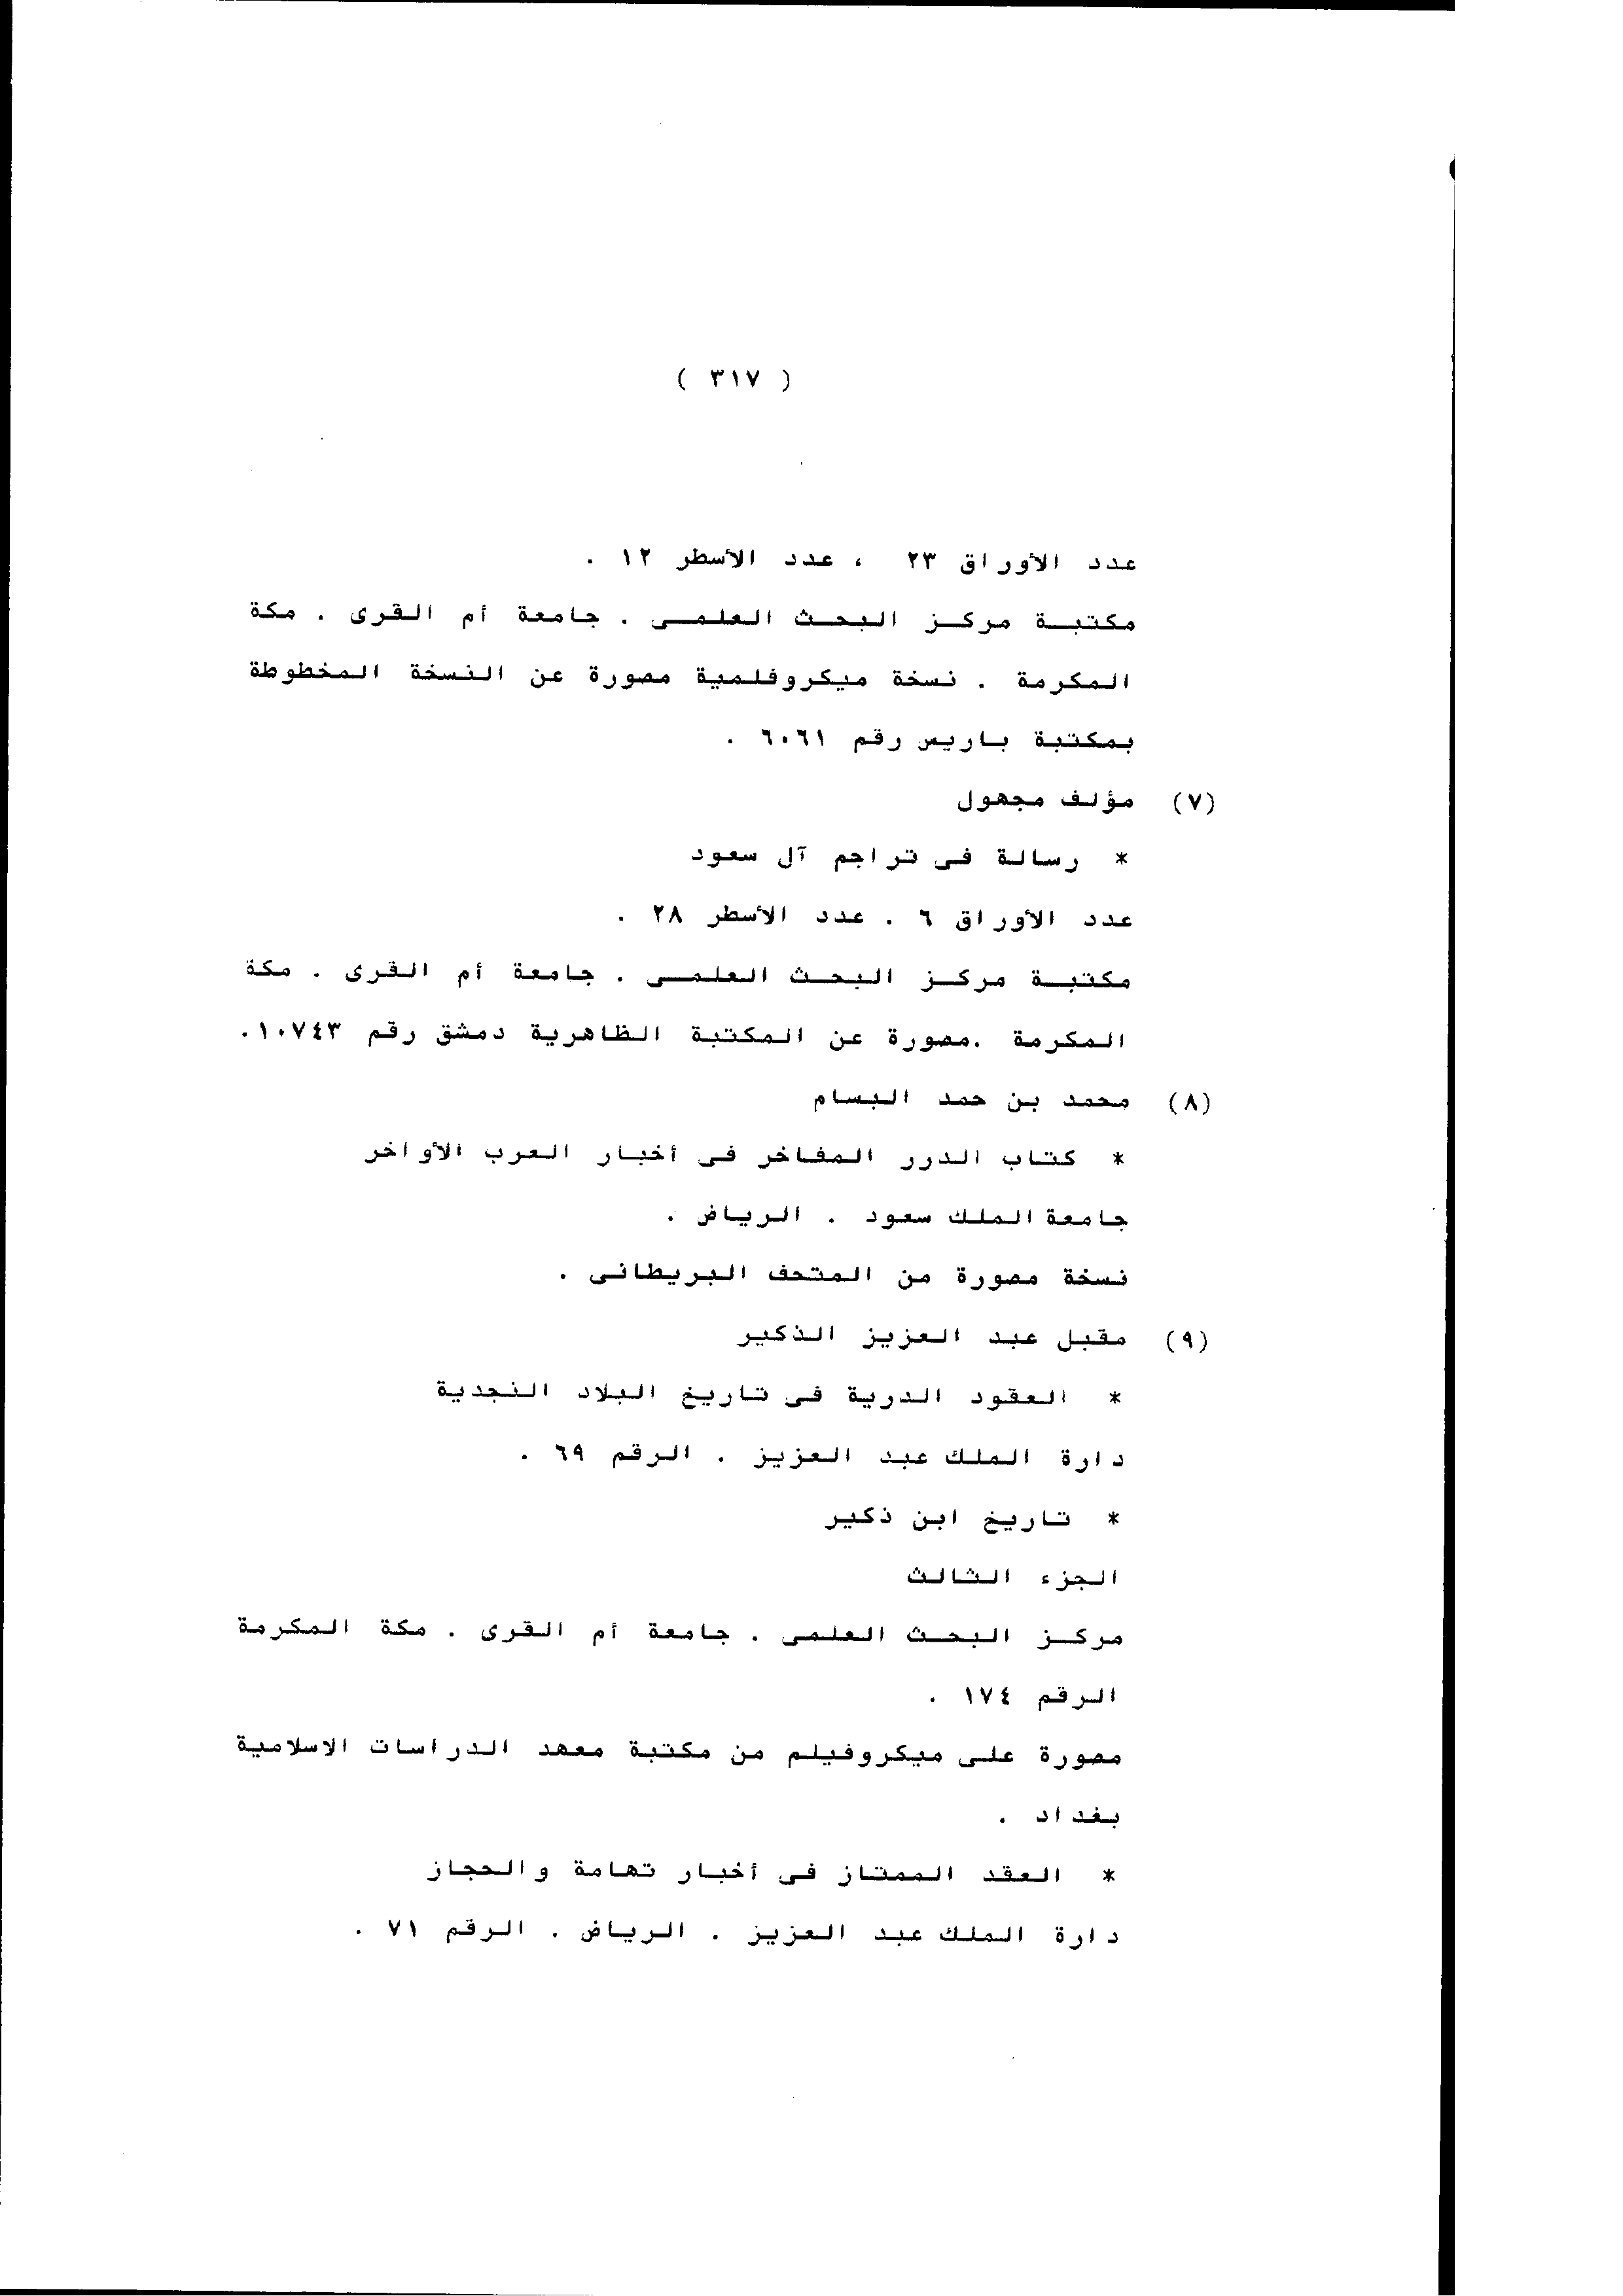 ( ٣١٧ )
عدد الأوراق ٢٣ ، عدد الأسطر ١٢ .
مكتبة مركز البحث العلمى . جامعة أم القرى . مكة
المكرمة . نسخة ميكروفلمية مصورة عن النسخة المخطوطة
بمكتبة باريس رقم ٦٠٦١ .
(٧) مؤلف مجهول
* رسالة فى تراجم آل سعود
عدد الأوراق ٦ . عدد الأسطر ٢٨ .
مكتبة مركز البحث العلمى . جامعة أم القرى . مكة
المكرمة .مصورة عن المكتبة الظاهرية دمشق رقم ١٠٧٤٣.
(٨) محمد بن حمد البسام
* كتاب الدرر المفاخر فى أخبار العرب الأواخر
جامعة الملك سعود . الرياض .
نسخة مصورة من المتحف البريطانى .
(٩) مقبل عبد العزيز الذكير
* العقود الدرية فى تاريخ البلاد النجدية
دارة الملك عبد العزيز . الرقم ٦٩ .
* تاريخ ابن ذكير
الجزء الثالث
مركز البحث العلمى . جامعة أم القرى . مكة المكرمة
الرقم ١٧٤ .
مصورة على ميكروفيلم من مكتبة معهد الدراسات الاسلامية
بغداد .
* العقد الممتاز فى أخبار تهامة والحجاز
دارة الملك عبد العزيز . الرياض . الرقم ٧١ .